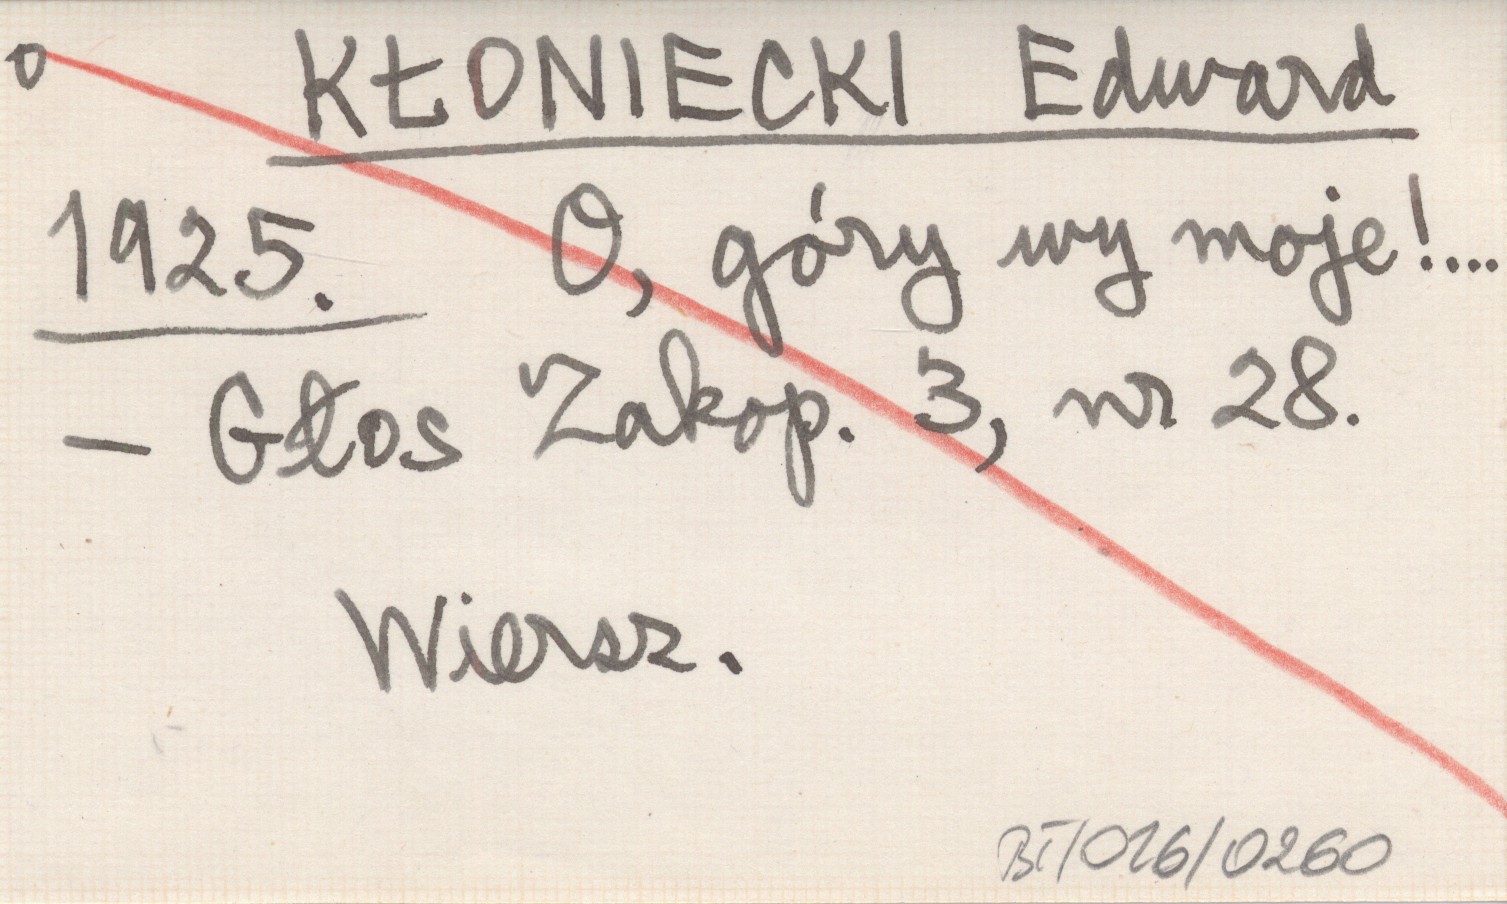 o KŁONIECKI Edward
1925. O, góry wy moje!....
– Głos Zakop. 3, nr 28.
Wiersz.
BT/016/0260